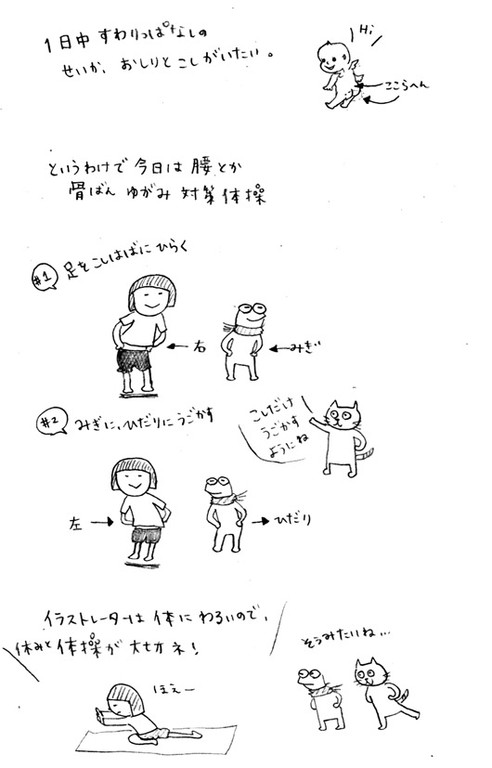 1日中 すわりっぱなしの
せいか、おしりと こしがいたい。
Hi
ここらへん
というわけで 今日は 腰とか
骨ばん ゆがみ 対策 体操
#1 足をこしはばにひらく
右
みぎ
#2 みぎに、ひだりにうごかす
こしだけ
うごかす
ようにね
左
ひだり
イラストレーターは 体に わるいので、
休みと 体操が 大セカネ!
そうみたいね...
ほえー